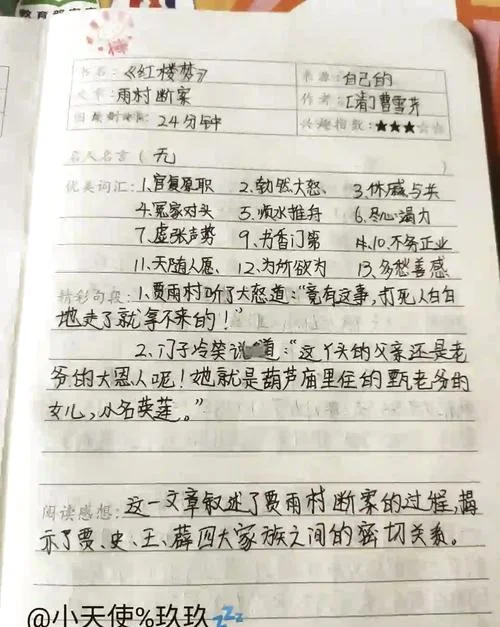 教育部
棒
书名：《红楼梦》 来源：自己的
文章：雨村断案 作者：[清]曹雪芹
阅读时间：24分钟 兴趣指数：★★★☆☆
名人名言（无 ）
优美词汇：1.官复原职 2.勃然大怒 3.休戚与共
4.冤家对头 5.顺水推舟 6.尽心竭力
7.虚张声势 9.书香门第 10.不务正业
11.天随人愿、12.为所欲为 13.多愁善感
精彩句段：1.贾雨村听了大怒道：“竟有这事，打死人白白
地走了就拿不来的！”
2.门子冷笑道：“这丫头的父亲还是老
爷的大恩人呢！她就是葫芦庙里住的甄老爷的
女儿，小名英莲。”
阅读感想：这一文章叙述了贾雨村断案的过程，揭
示了贾、史、王、薛四大家族之间的密切关系。
@小天使%玖玖💤